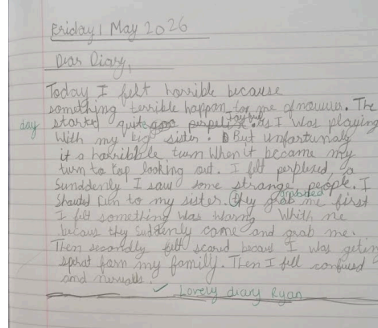 Friday 1 May 2026
Dear Diary,
Today I felt horrible because
something terrible happan to me of nowwer. The
day started quite playful As I was playing
with my big sister. But unfortunaly
it s a horribble turn when it became my
turn to top looking out. I felt perplexed, a
Sunddenly I saw some strange people. I
shouted run to my sister. They grab me first
I felt something was wrong whith me
becaus thy suddenly came and grab me.
Then secondly felt scard becaus I was geten
sperat form my familly. Then I fell confused
and
Lovely diary Ryan